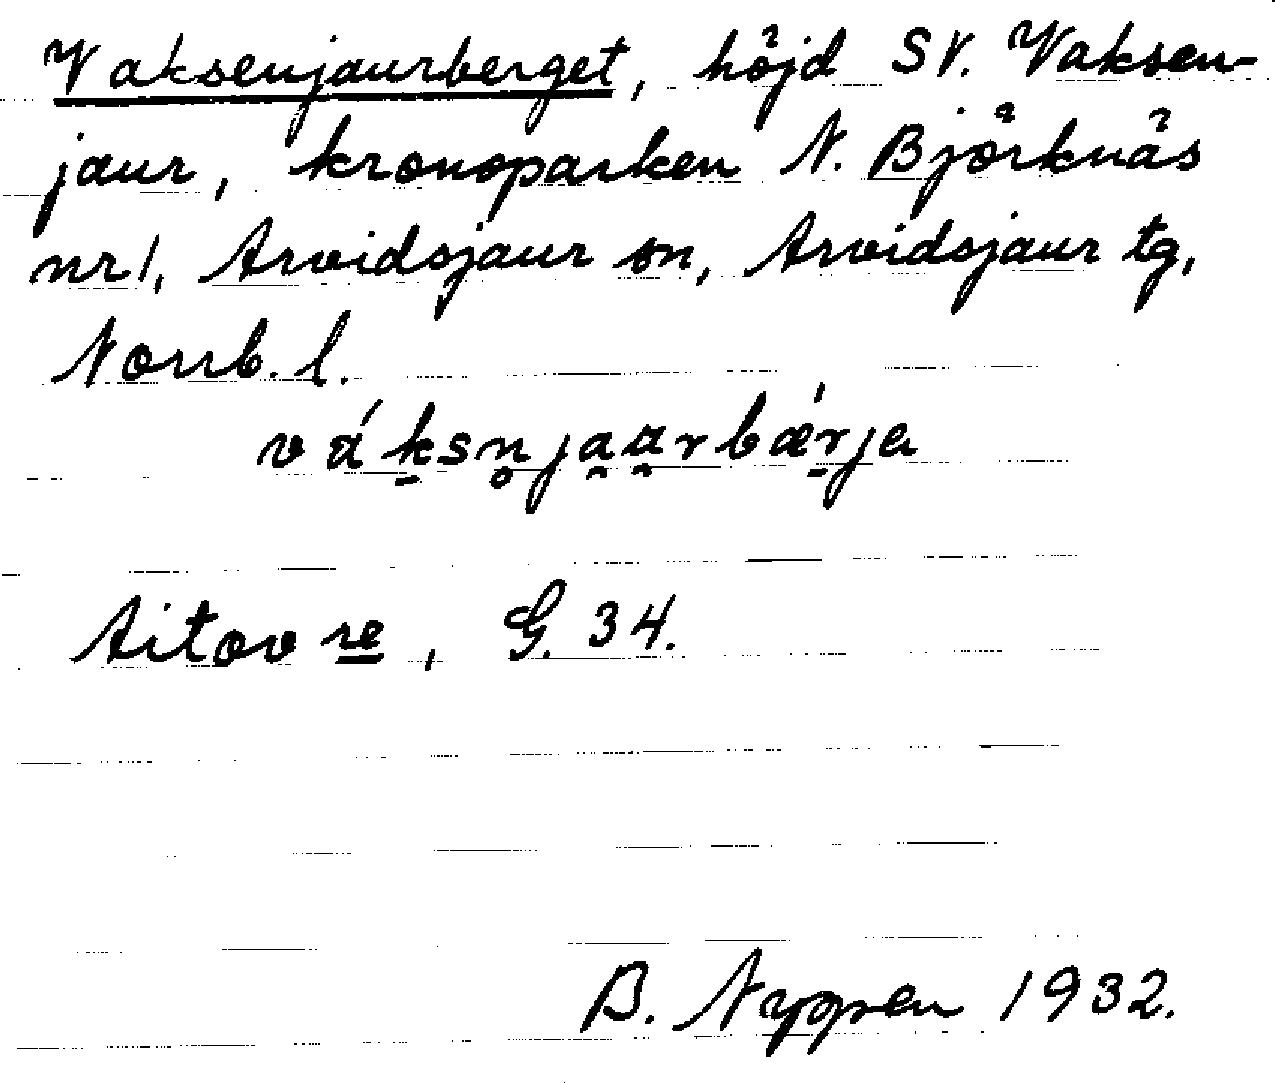 Vaksenjaurberget, höjd SV. Vaksen-
jaur, kronoparken N. Björknäs
nr 1, Arvidsjaur sn, Arvidsjaur tg,
Norrb. l.
váksn̥ja̯a̯rbǽrja
Aitovre, G. 34.
B. Nygren 1932.